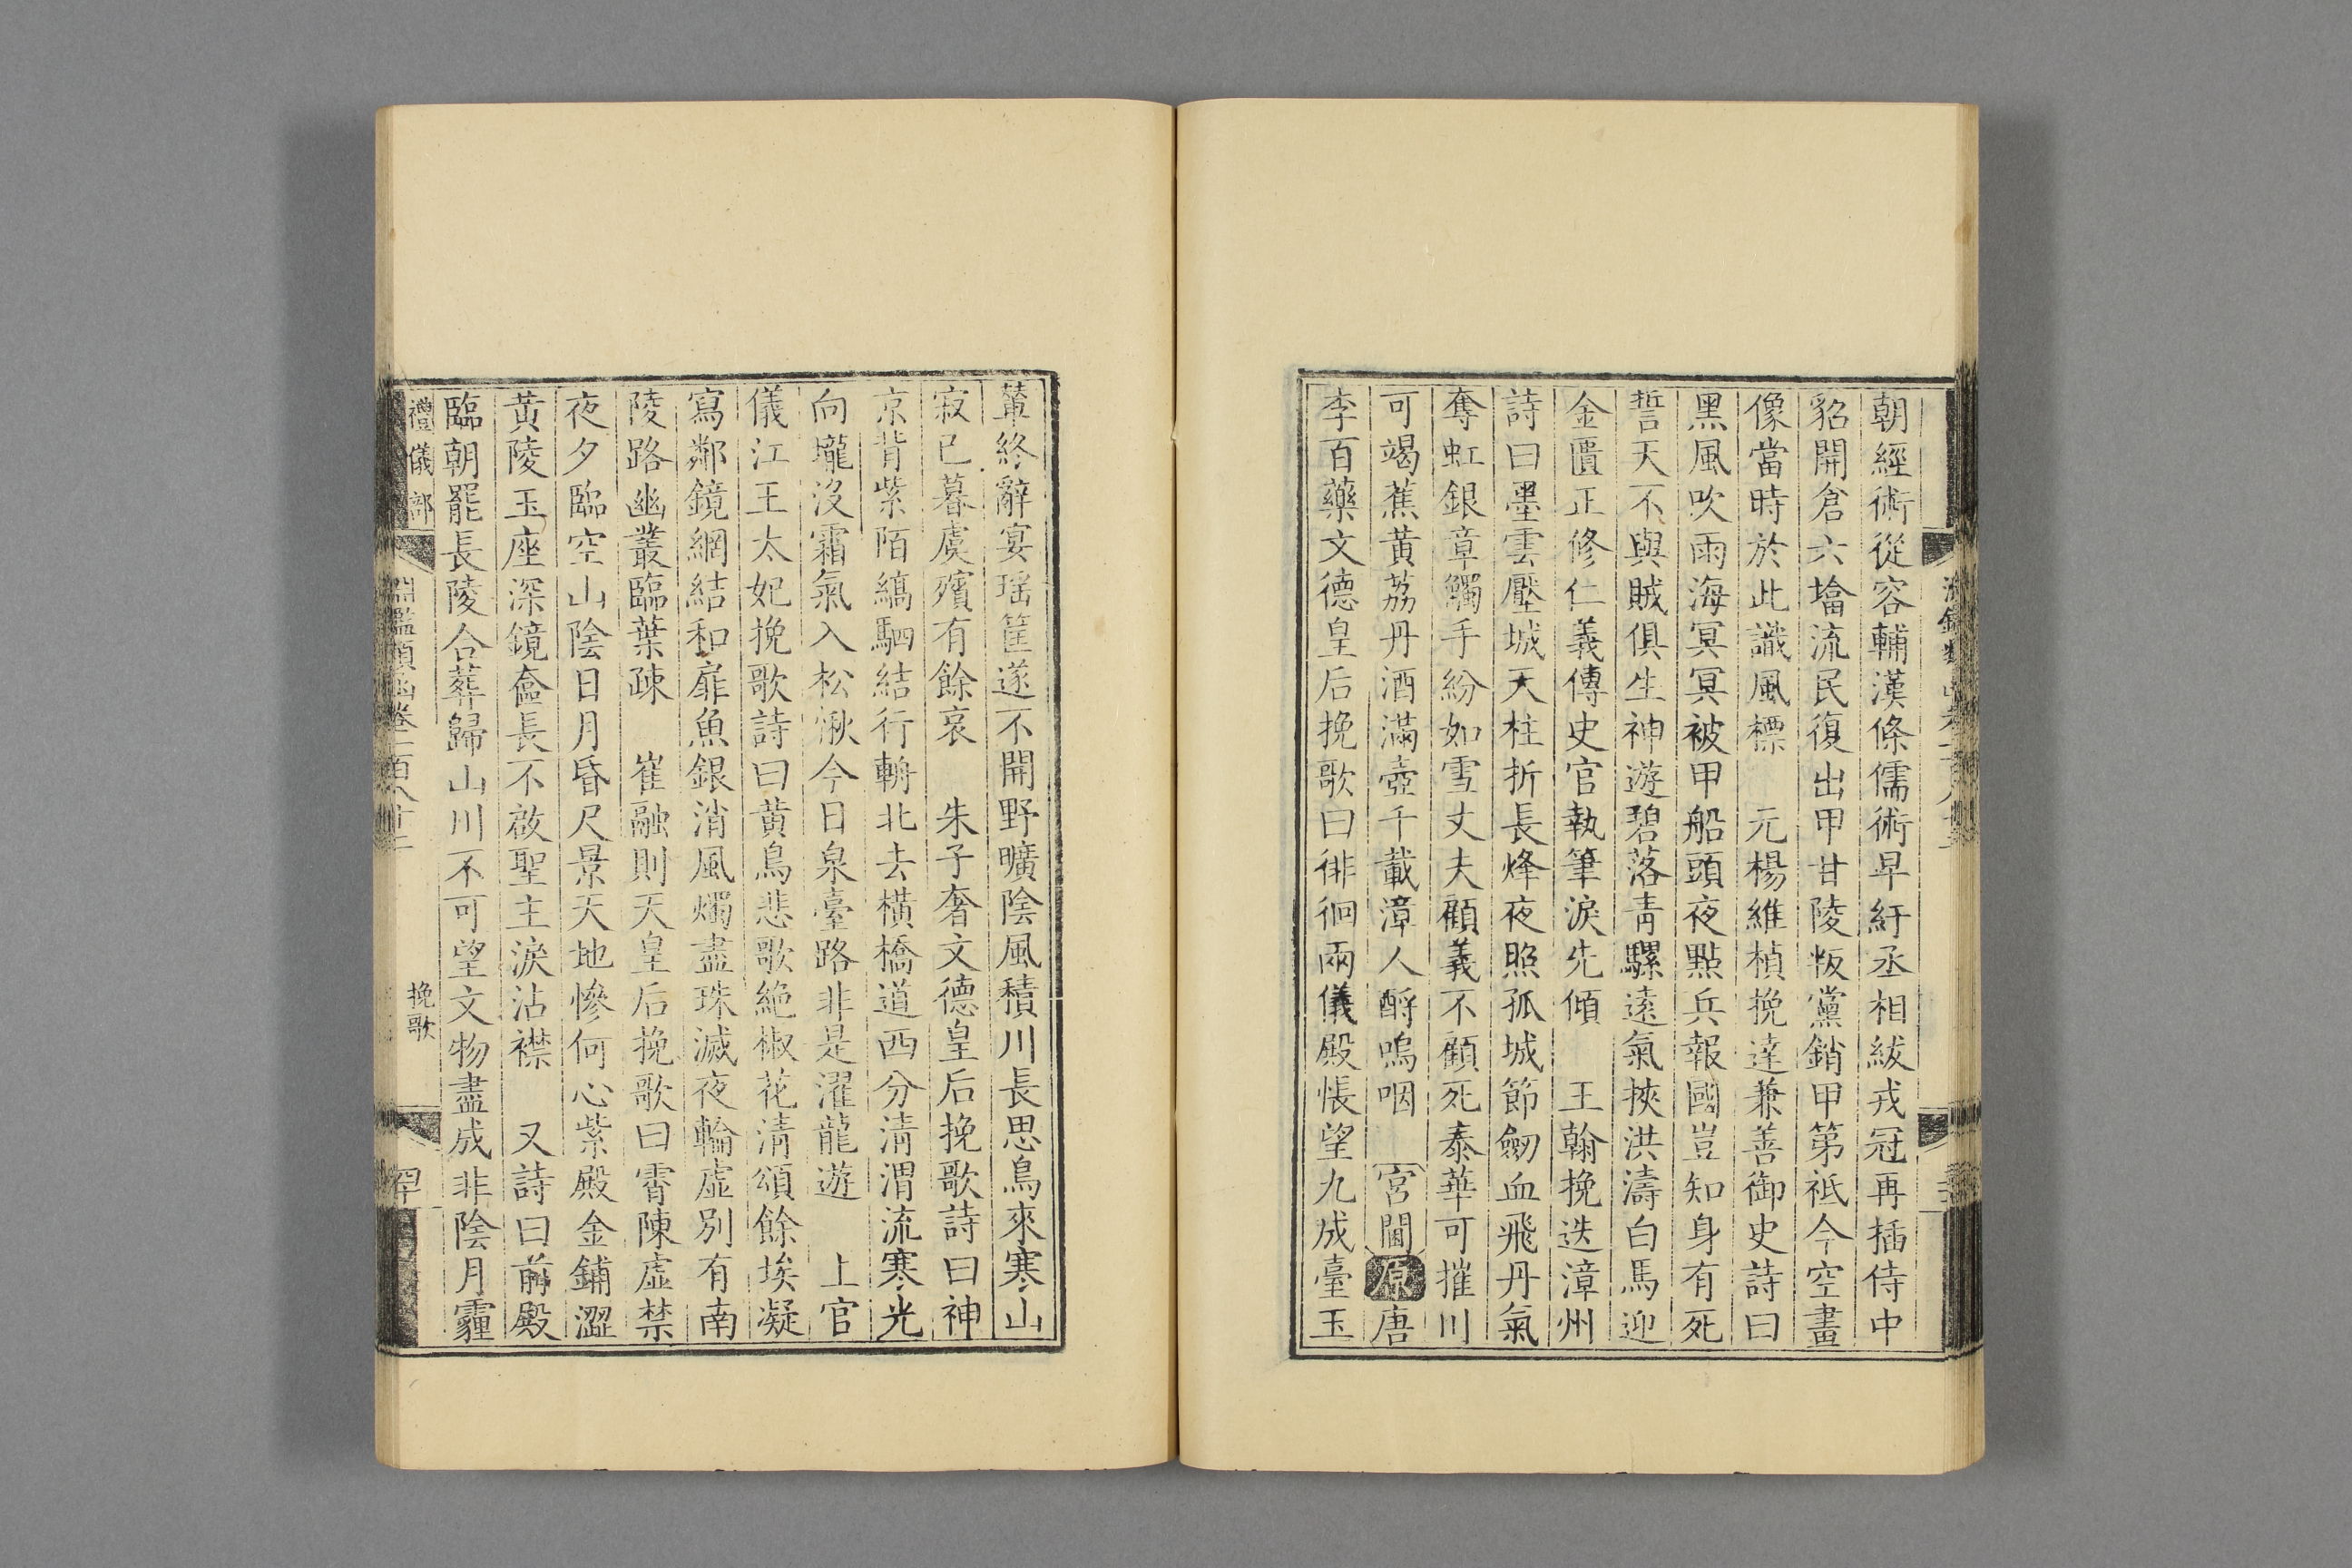 朝經術從容輔漢條儒術早紆丞相紱戎冠再插侍中
貂開倉六㙮流民復出甲甘陵叛黨銷甲第祗今空畫
像當時於此識風標　元楊維楨挽達兼善御史詩曰
黑風吹雨海冥冥被甲船頭夜點兵報國豈知身有死
誓天不與賊俱生神遊碧落青騾遠氣挾洪濤白馬迎
金匱正修仁義傳史官執筆淚先傾　王翰挽迭漳州
詩曰墨雲壓城天柱折長烽夜照孤城節劒血飛丹氣
奪虹銀章觸手紛如雪丈夫顧義不顧死泰華可摧川
可竭蕉黃荔丹酒滿壺千載漳人酹嗚咽　宮闈原唐
李百藥文德皇后挽歌曰徘徊兩儀殿悵望九成臺玉
輦終辭宴瑶筐遂不開野曠陰風積川長思鳥來寒山
寂已暮虞殯有餘哀　朱子奢文德皇后挽歌詩曰神
京背紫陌縞駟結行輈北去橫橋道西分清渭流寒光
向壠沒霜氣入松楸今日泉臺路非是濯龍遊　上官
儀江王太妃挽歌詩曰黃鳥悲歌絶椒花清頌餘埃凝
寫鄰鏡網結和扉魚銀消風燭盡珠滅夜輪虛別有南
陵路幽叢臨葉疎　崔融則天皇后挽歌曰霄陳虛禁
夜夕臨空山陰日月昏尺景天地慘何心紫殿金鋪澀
黃陵玉座深鏡奩長不啟聖主淚沾襟　又詩曰前殿
臨朝罷長陵合葬歸山川不可望文物盡成非陰月霾
禮儀部
淵鑑類函卷一百八十二
挽歌